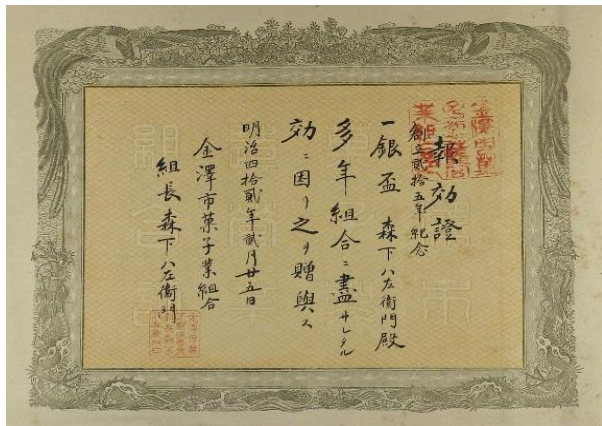 報効證
創立貳拾五年紀念
一銀盃 森下八左衛門殿
多年組合ニ盡サレタル
効ニ因リ之ヲ贈與ス
明治四拾貳年貳月廿五日
金澤市菓子業組合
組長森下八左衛門